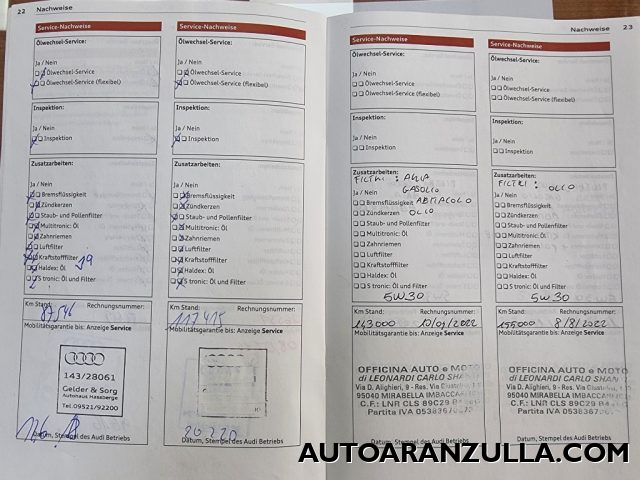 22 Nachweise
Service-Nachweise
Ölwechsel-Service:
Ja / Nein
Ölwechsel-Service
Ölwechsel-Service (flexibel)
Inspektion:
Ja / Nein
Inspektion
Zusatzarbeiten:
Ja / Nein
Bremsflüssigkeit
Zündkerzen
Staub- und Pollenfilter
Multitronic: Öl
Zahnriemen
Luftfilter
Kraftstofffilter
Haldex: Öl
S tronic: Öl und Filter
Km Stand: Rechnungsnummer:
87546
Mobilitätsgarantie bis: Anzeige Service
143/28061
Gelder & Sorg
Autohaus Hassberge
Tel.09521/92200
Datum, Stempel des Audi Betriebs
Service-Nachweise
Ölwechsel-Service:
Ja / Nein
Ölwechsel-Service
Ölwechsel-Service (flexibel)
Inspektion:
Ja / Nein
Inspektion
Zusatzarbeiten:
Ja / Nein
Bremsflüssigkeit
Zündkerzen
Staub- und Pollenfilter
Multitronic: Öl
Zahnriemen
Luftfilter
Kraftstofffilter
Haldex: Öl
S tronic: Öl und Filter
Km Stand: Rechnungsnummer:
117415
Mobilitätsgarantie bis: Anzeige Service
Datum, Stempel des Audi Betriebs
Nachweise 23
Service-Nachweise
Ölwechsel-Service:
Ja / Nein
Ölwechsel-Service
Ölwechsel-Service (flexibel)
Inspektion:
Ja / Nein
Inspektion
Zusatzarbeiten:
FILTRI: ARIA
Ja / Nein GASOLIO
Bremsflüssigkeit ABITACOLO
Zündkerzen OLIO
Staub- und Pollenfilter
Multitronic: Öl
Zahnriemen
Luftfilter
Kraftstofffilter
Haldex: Öl
S tronic: Öl und Filter
5W30
Km Stand: Rechnungsnummer:
143000
Mobilitätsgarantie bis: Anzeige Service
OFFICINA AUTO e MOTO
di LEONARDI CARLO
Via D. Alighieri, 9 - Res. Via
95040 MIRABELLA IMBACCARI
C.F.: LNR CLS 89C29
Partita IVA
Datum, Stempel des Audi Betriebs
Service-Nachweise
Ölwechsel-Service:
Ja / Nein
Ölwechsel-Service
Ölwechsel-Service (flexibel)
Inspektion:
Ja / Nein
Inspektion
Zusatzarbeiten:
FILTRI: OLIO
Ja / Nein
Bremsflüssigkeit
Zündkerzen
Staub- und Pollenfilter
Multitronic: Öl
Zahnriemen
Luftfilter
Kraftstofffilter
Haldex: Öl
S tronic: Öl und Filter
5W30
Km Stand: Rechnungsnummer:
155000 8/8/2022
Mobilitätsgarantie bis: Anzeige Service
OFFICINA AUTO e MOTO
di LEONARDI CARLO
Via D. Alighieri, 9 - Res. Via
95040 MIRABELLA IMBACCARI
C.F.: LNR CLS 89C29
Partita IVA
AUTOARANZULLA.COM